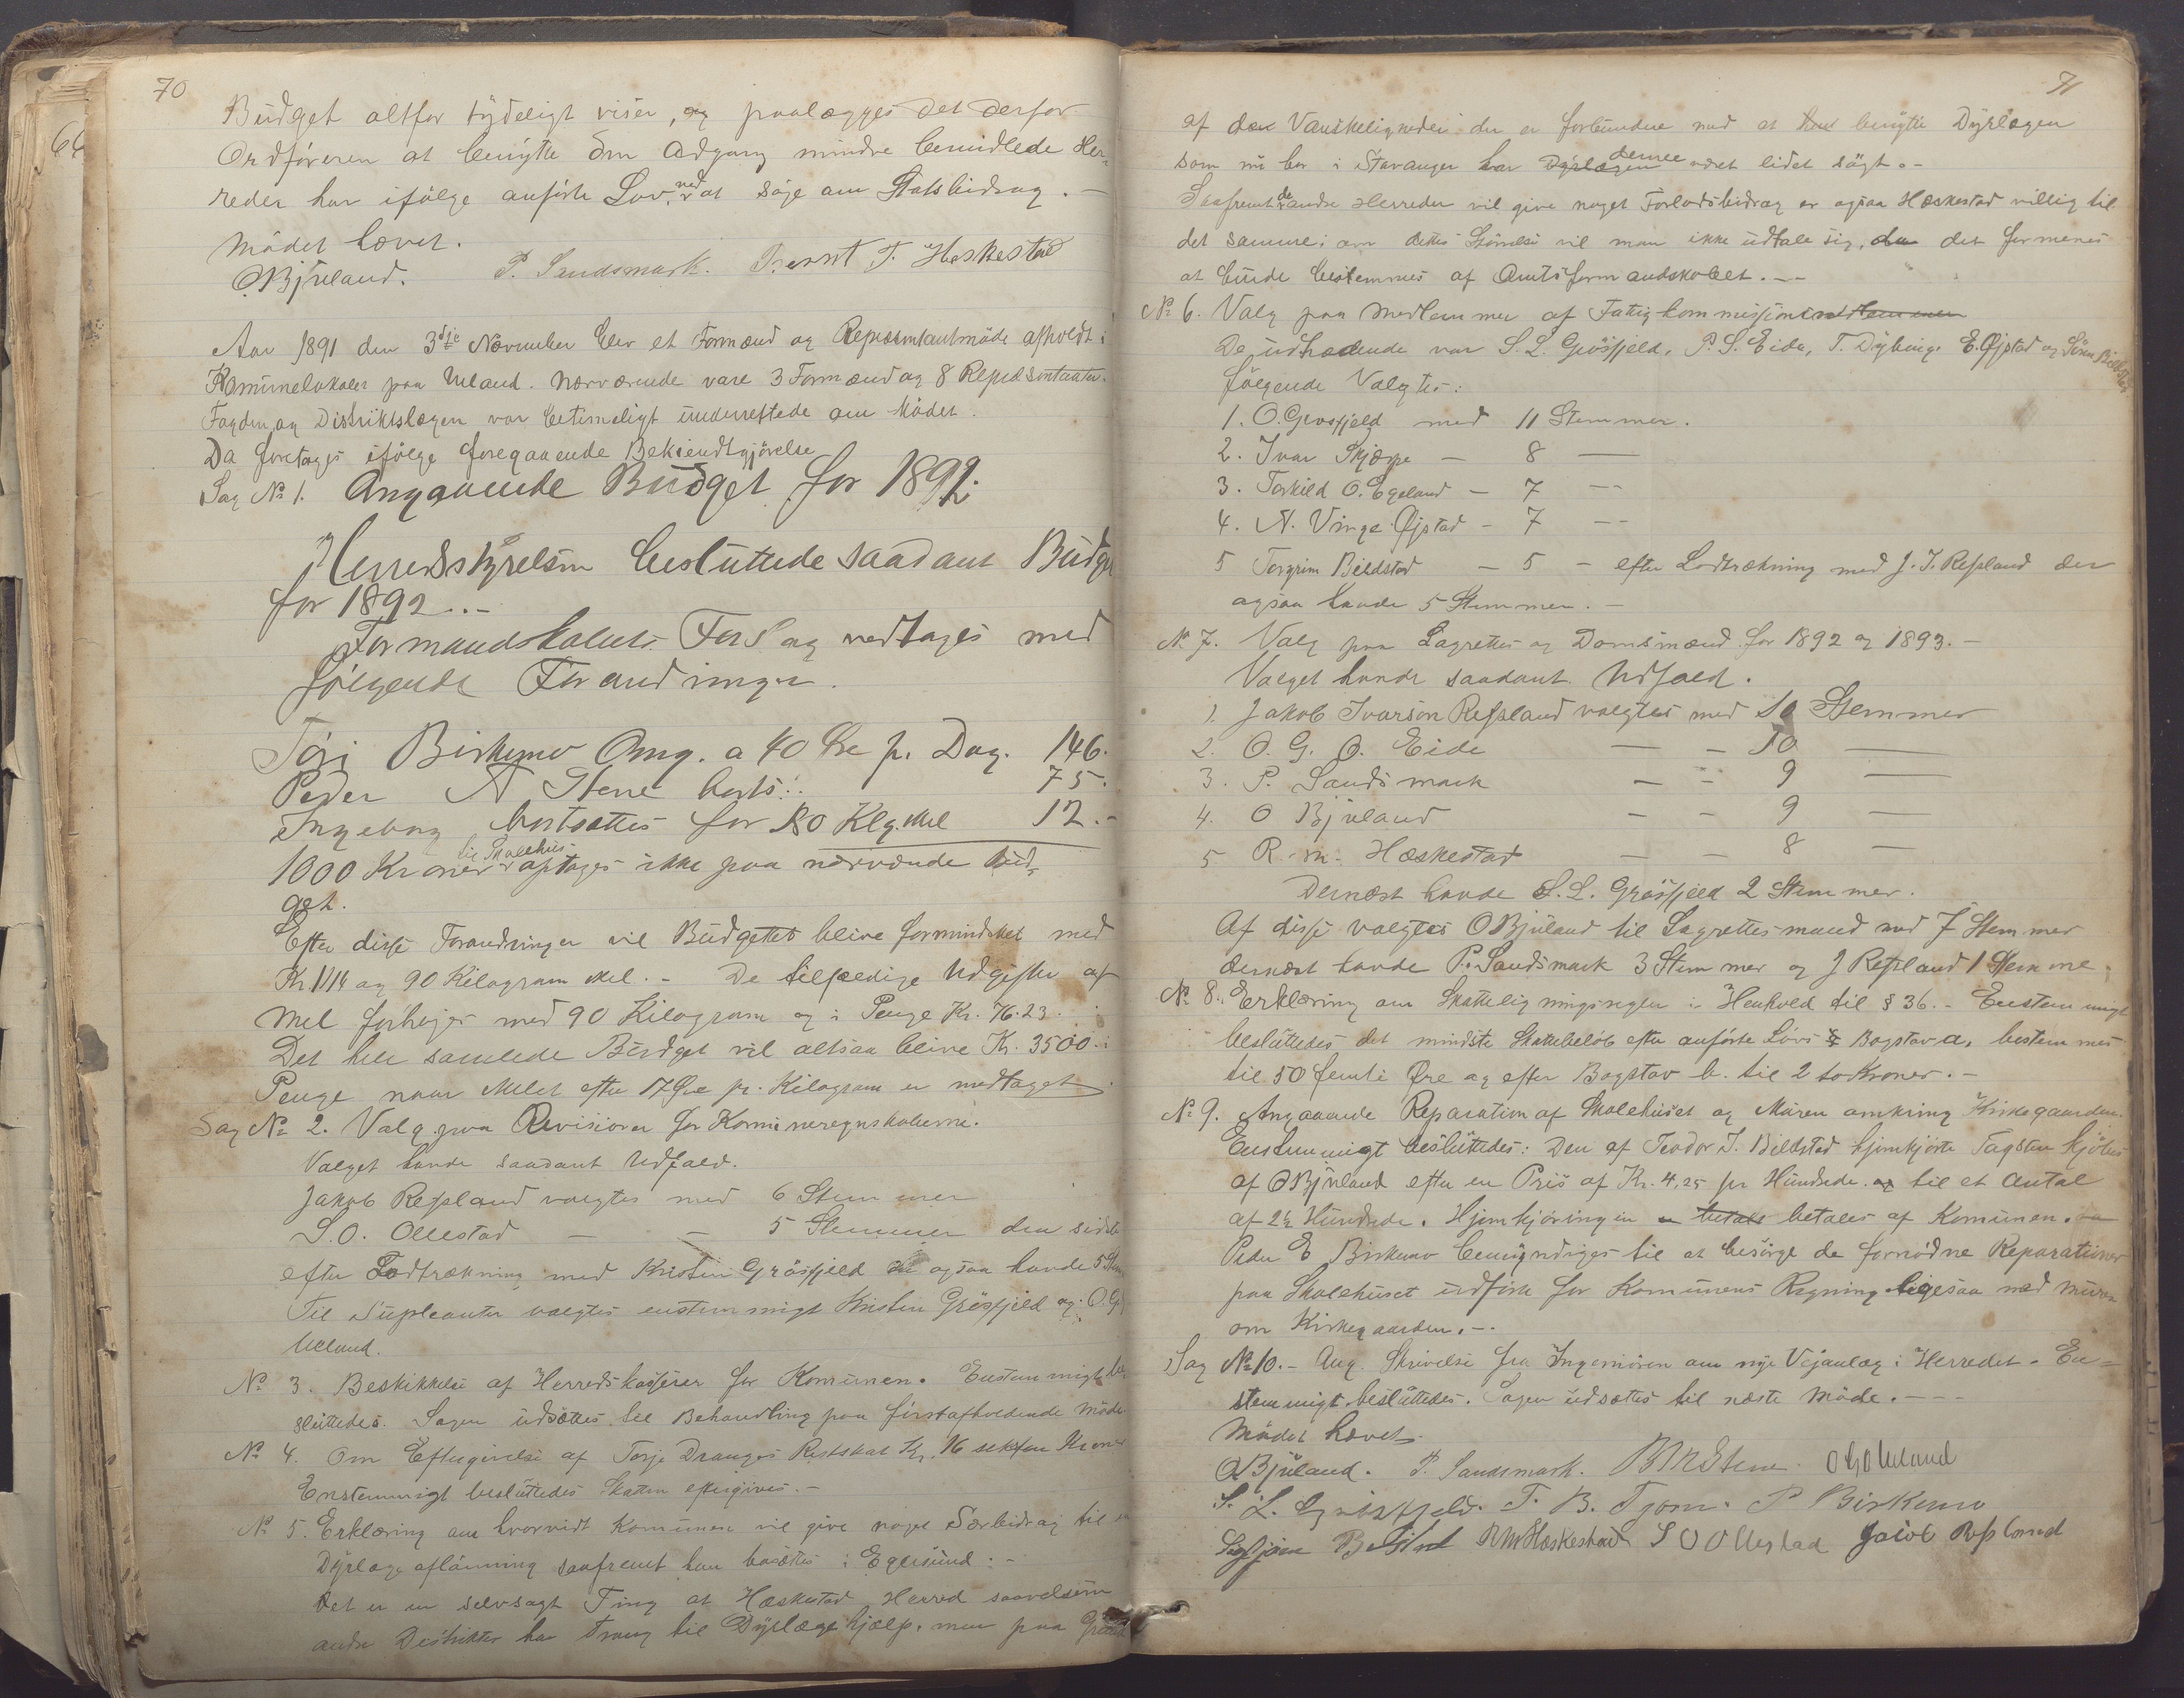 70
Budget altfor tydeligt viser, og paalægges det derfor
Ordføreren at benytte den Adgang mindre bemidlede Her-
reder har ifølge anførte Lov, ved at søge om Statsbidrag. —
Mødet hævet.
OBjuland. P. Sandsmark. Berent T. Heskestad
Aar 1891 den 3die November blev et Formænd og Repræsentantmøde afholdt i
Kommunelokalet paa Ueland. Nærværende vare 3 Formænd og 8 Repræsentanter.
Fogden og Distriktslægen var betimeligt underrettede om Mødet.
Da foretages ifølge foregaaende Bekjendtgjørelse
Sag No 1. Angaaende Budget for 1892.
Herredsstyrelsen besluttede saadant Budget
for 1892.-
Formandskabets Forslag vedtages med
følgende Forandringer.
Tøri Birkemo Omg. a 40 Øre p. Dag. 146.
Peder A Stene borts. 75.
Ingeborg bortsættes for 80 Klg. Mel 12.-
1000 Kroner til Skolehus optages ikke paa nærværende Bud-
get.
Efter disse Forandringer vil Budgettet blive formindsket med
Kr. 1114 og 90 Kilogram Mel. - De tilfældige Udgifter af
Mel forhøjes med 90 Kilogram og i Penge Kr. 76.23.
Det hele samlede Budget vil altsaa blive Kr. 3500. i
Penge naar Melet efter 17 Øre pr. Kilogram er medtaget.
Sag No 2. Valg paa Revisiorer for Kommuneregnskaberne.
Valget havde saadant Udfald.
Jakob Refsland valgtes med 6 Stemmer
S.O. Ollestad — - 5 Stemmer den sidste
efter Lodtrækning med Kristen Grøsfjeld der ogsaa havde 5 Stem
Til Supleanter valgtes enstemmigt Kristen Grøsfjeld og O. G.
Ueland.
No 3. Beskikkelse af Herredskasserer for Kommunen. Enstemmigt be
sluttedes. Sagen udsættes til Behandling paa førstafholdende Møde
No 4. Om Eftergivelse af Torje Dranges Restskat Kr. 16 seksten Kroner
Enstemmigt besluttedes Skatten eftergives. -
No 5. Erklæring om hvorvidt Kommunen vil give noget Særbidrag til
Dyrlægeaflønning saafremt han bosættes i Egersund. -
Det er en selvsagt Ting at Heskestad Herred saavelsom
andre Distrikter har Trang til Dyrlægehjælp, men paa Grund
71
af de Vanskeligheder der er forbundne med at benytte Dyrlægen
som nu bor i Stavanger har denne været lidet søgt. -
Saafremt de andre Herreder vil give noget Forlodsbidrag er ogsaa Heskestad villig til
det samme; om dettes Størrelse vil man ikke udtale sig, da det formenes
at burde bestemmes af Amtsformandskabet. - -
No 6. Valg paa Medlemmer af Fattigkommissionen
De udtrædende var S. L. Grøsfjeld, P. S. Eide, T. Dybing, E. Øjstad og Søren Bildstad
følgende Valgtes:
1. O. Grøsfjeld med 11 Stemmer.
2. Ivar Skjærpe — 8 —
3. Torkild O. Egeland - 7 —
4. N. Vinge Øjstad - 7 —
5 Torgrim Bildstad — 5 - efter Lodtrækning med J. I. Refsland der
ogsaa havde 5 Stemmer. -
No 7. Valg paa Lagrettes og Domsmænd for 1892 og 1893. -
Valget havde saadant Udfald.
1. Jakob Ivarson Refsland valgtes med 10 Stemmer
2. O. G. O. Eide — - 10 —
3. P. Sandsmark — - 9 —
4. O Bjuland — - 9 —
5 R. M. Heskestad — 8 —
Dernæst havde S. L. Grøsfjeld 2 Stemmer.
Af disse valgtes OBjuland til Lagrettesmand med 7 Stemmer
dernæst havde P. Sandsmark 3 Stemmer og J Refsland 1 Stemme.
No 8. Erklæring om Skatteligningsregler i Henhold til § 36. - Enstemmigt
besluttedes det mindste Skattebeløb efter anførte Lovs § Bogstav a. bestemmes
til 50 femti Øre og efter Bogstav b. til 2 to Kroner. -
No 9. Angaaende Reparation af Skolehuset og Muren omkring Kirkegaarden.
Enstemmigt besluttedes: Den af Teodor T. Bildstad hjemkjørte Tagsten kjøbes
af OBjuland efter en Pris af Kr. 4,25 pr Hundrede og til et Antal
af 2½ Hundrede. Hjemkjøringen betales af Kommunen.
Peder E Birkemo bemyndiges til at besørge de fornødne Reparationer
paa Skolehuset udført for Kommunens Regning ligesaa med Muren
om Kirkegaarden. -
Sag No 10. - Ang. Skrivelse fra Ingeniøren om nye Vejanlæg i Herredet. En-
stemmigt besluttedes. Sagen udsættes til næste Møde. - - -
Mødet hævet.
OBjuland. P. Sandsmark. O G O Ueland
S. L. Grøsfjeld. T. B. Tjørn. P Birkemo
RMHeskestad S O Ollestad Jacob Refsland